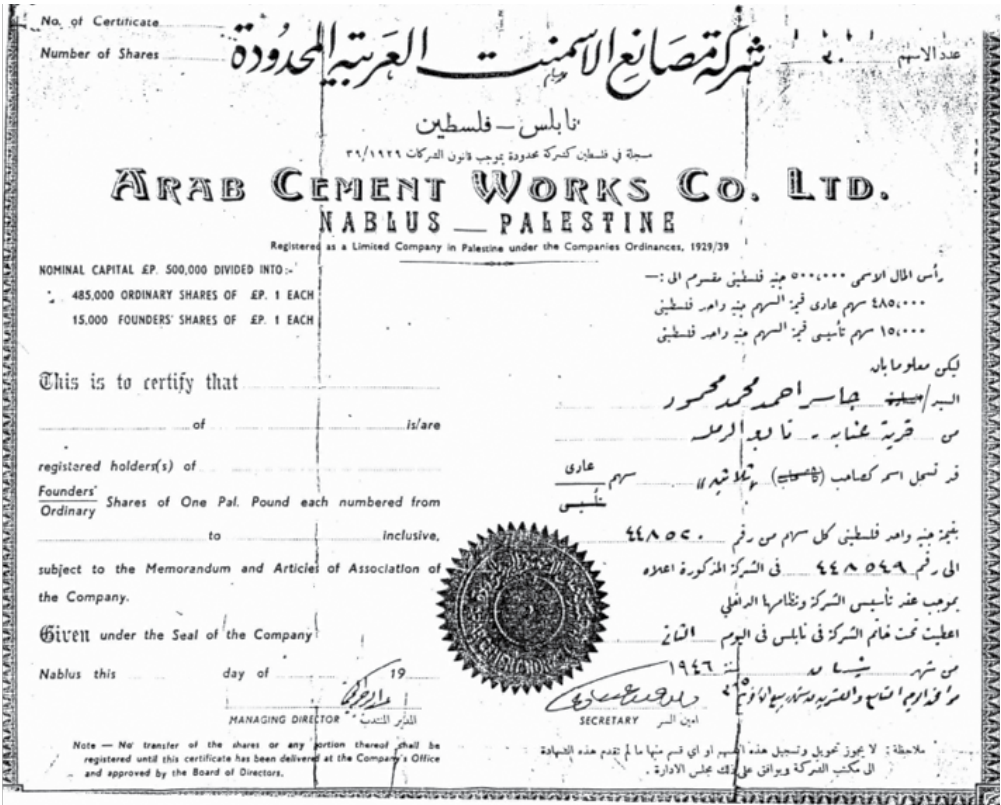 No. of Certificate
Number of Shares
عدد الاسهم ٣٠
شركة مصانع الاسمنت العربية المحدودة
نابلس — فلسطين
مسجلة في فلسطين كشركة محدودة بموجب قانون الشركات ٣٩/١٩٢٩
ARAB CEMENT WORKS CO. LTD.
NABLUS — PALESTINE
Registered as a Limited Company in Palestine under the Companies Ordinances, 1929/39
NOMINAL CAPITAL £P. 500,000 DIVIDED INTO:-
485,000 ORDINARY SHARES OF £P. 1 EACH
15,000 FOUNDERS' SHARES OF £P. 1 EACH
This is to certify that
of is/are
registered holders(s) of
Founders'
Ordinary
Shares of One Pal. Pound each numbered from
to inclusive,
subject to the Memorandum and Articles of Association of
the Company.
Given under the Seal of the Company
Nablus this day of 19
MANAGING DIRECTOR المدير المنتدب
SECRETARY امين السر
Note — No transfer of the shares or any portion thereof shall be
registered until this certificate has been delivered at the Company's Office
and approved by the Board of Directors.
رأس المال الاسمى ٥٠٠٬٠٠٠ جنيه فلسطينى مقسوم الى :—
٤٨٥٬٠٠٠ سهم عادى قيمة السهم جنيه واحد فلسطينى
١٥٬٠٠٠ سهم تأسيسى قيمة السهم جنيه واحد فلسطينى
ليكن معلوما بان
السيد/ جاسر احمد محمد محمود
من قرية عنابه - تابع الرمله
قد تسجل اسمه كصاحب ثلاثين سهم عادى
تأسيسى
بقيمة جنيه واحد فلسطينى كل سهم من رقم ٤٤٨٥٢٠
الى رقم ٤٤٨٥٤٩ فى الشركة المذكورة اعلاه
بموجب عقد تأسيس الشركة ونظامها الداخلي
اعطيت تحت خاتم الشركة فى نابلس فى اليوم الثانى
من شهر نيسان سنة ١٩٤٦
ملاحظة : لا يجوز تحويل وتسجيل هذه السهم او اي قسم منها ما لم تقدم هذه الشهادة
الى مكتب الشركة ويوافق على ذلك مجلس الادارة .